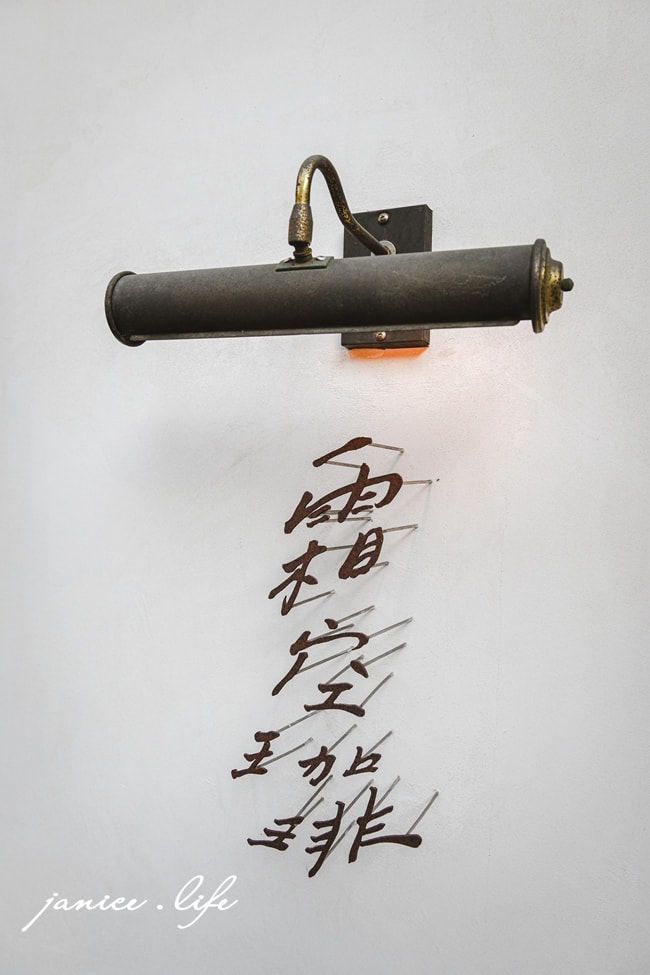 霜空珈琲
janice.life